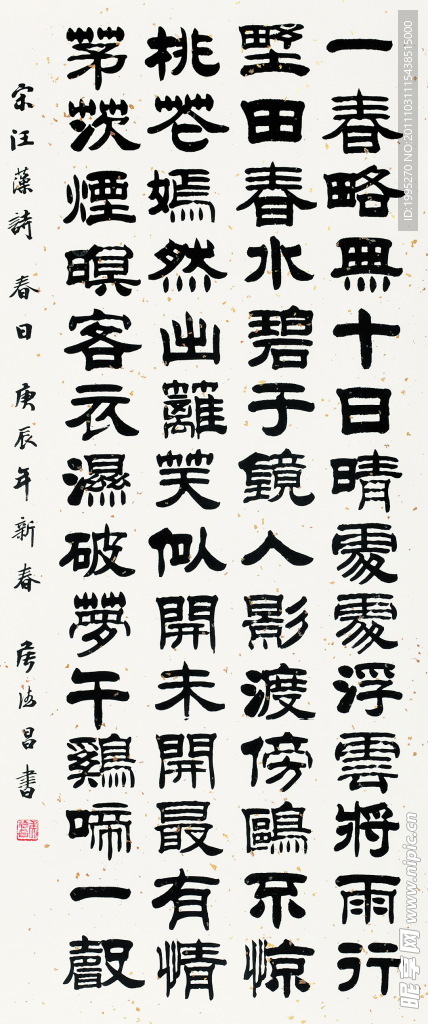 一春略無十日晴處處浮雲將雨行
野田春水碧于鏡人影渡傍鷗不惊
桃花嫣然出籬笑似開未開最有情
茅茨煙暝客衣濕破夢午鷄啼一聲
宋汪藻詩 春日 庚辰年新春 海昌書
ID:1995270 NO:20111031115438515000
昵享网 www.nipic.cn